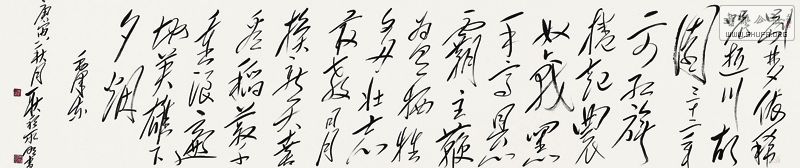 别梦依稀
咒逝川故
園三十二年
前红旗
捲起農
奴戟黑
手高悬
霸主鞭
为有牺牲
多壮志
敢教日月
换新天喜
看稻菽千
重浪遍
地英雄下
夕烟
毛泽东
庚寅秋月